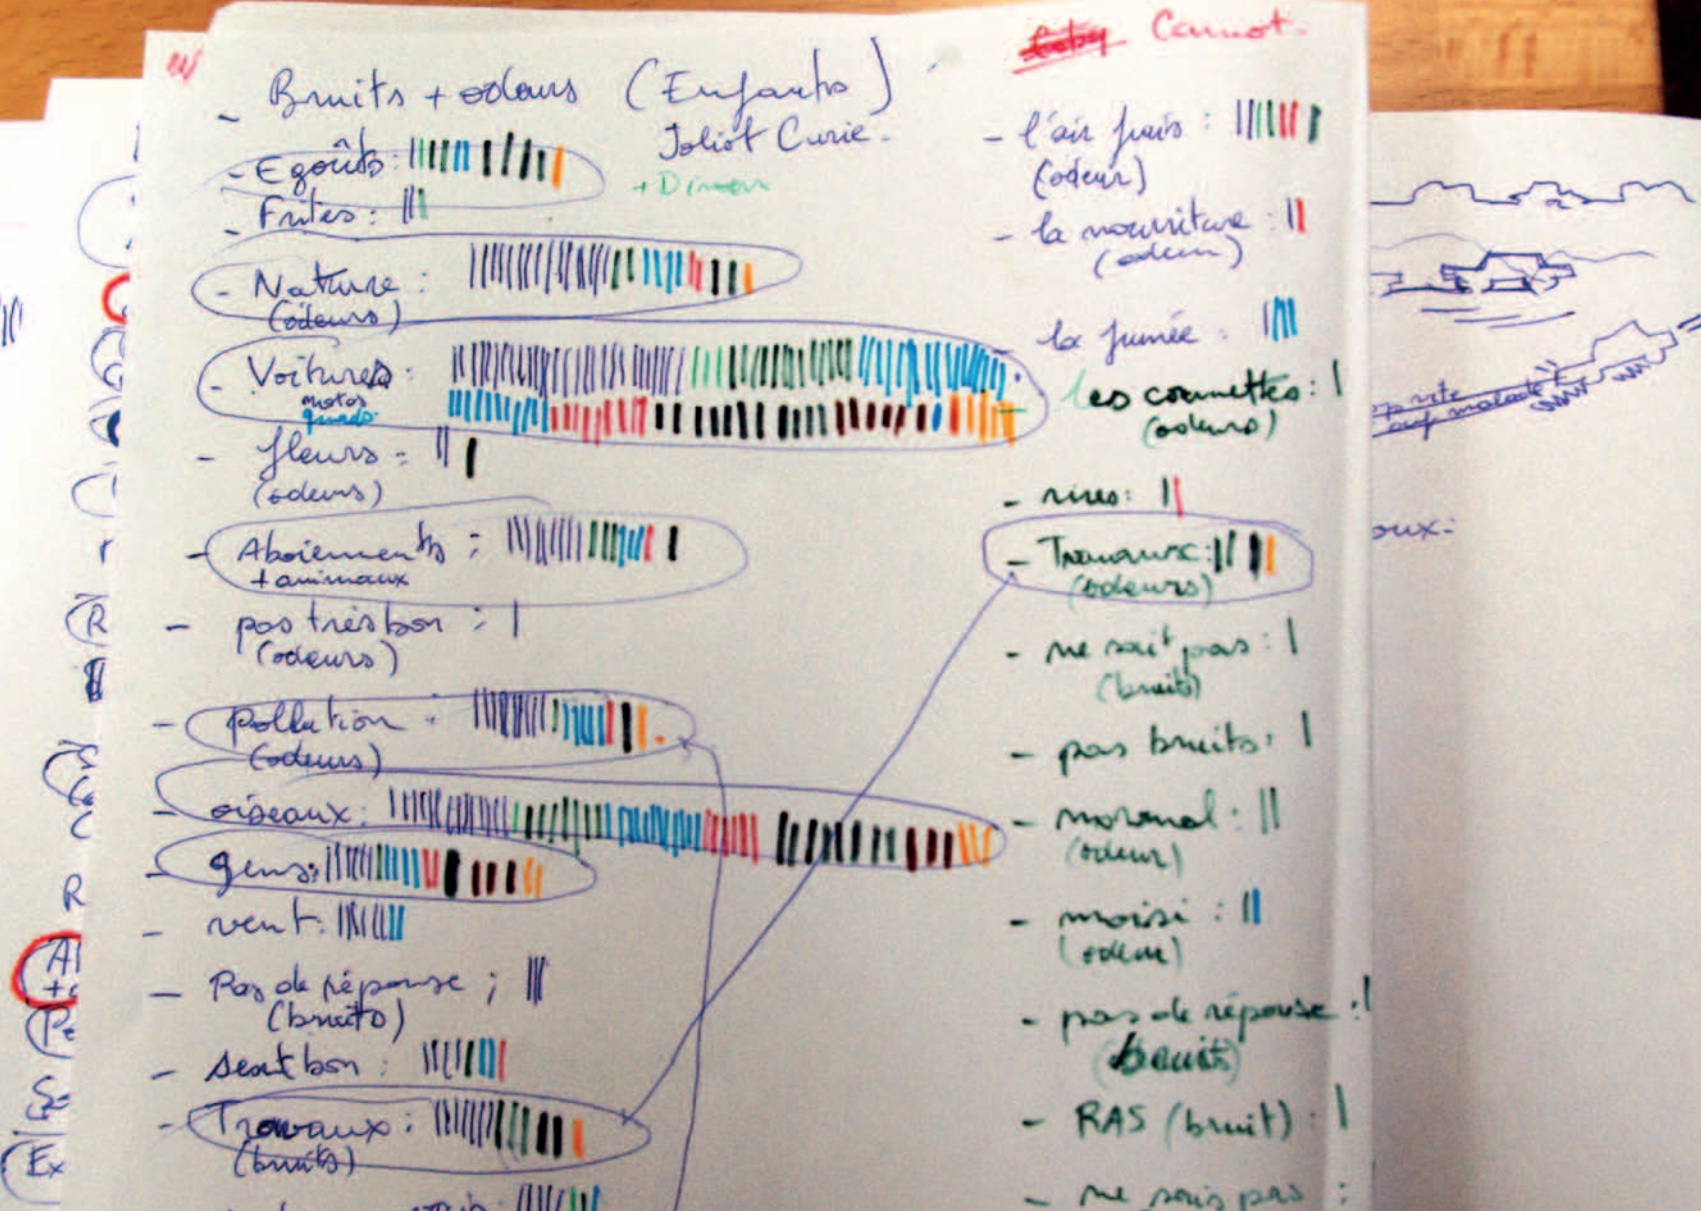 - Bruits + odeurs (Enfants)
Joliot Curie.
- Egoûts :
- Frites :
- Nature :
(odeurs)
- Voitures :
motos
quads
- fleurs :
(odeurs)
- Aboiements :
+ animaux
- pas très bon :
(odeurs)
- pollution :
(odeurs)
- oiseaux :
- gens :
- vent :
- Pas de réponse :
(bruits)
- sent bon :
- Travaux :
(bruits)
Carnot.
- l'air frais :
(odeur)
- la nourriture :
(odeur)
la fumée :
les cournettes :
(odeurs)
- rires :
- Travaux :
(odeurs)
- ne sait pas :
(bruits)
- pas bruits :
- normal :
(odeur)
- moisi :
(odeur)
- pas de réponse :
(bruits)
- RAS (bruit) :
- ne sais pas :
oux :
R
R
Ex